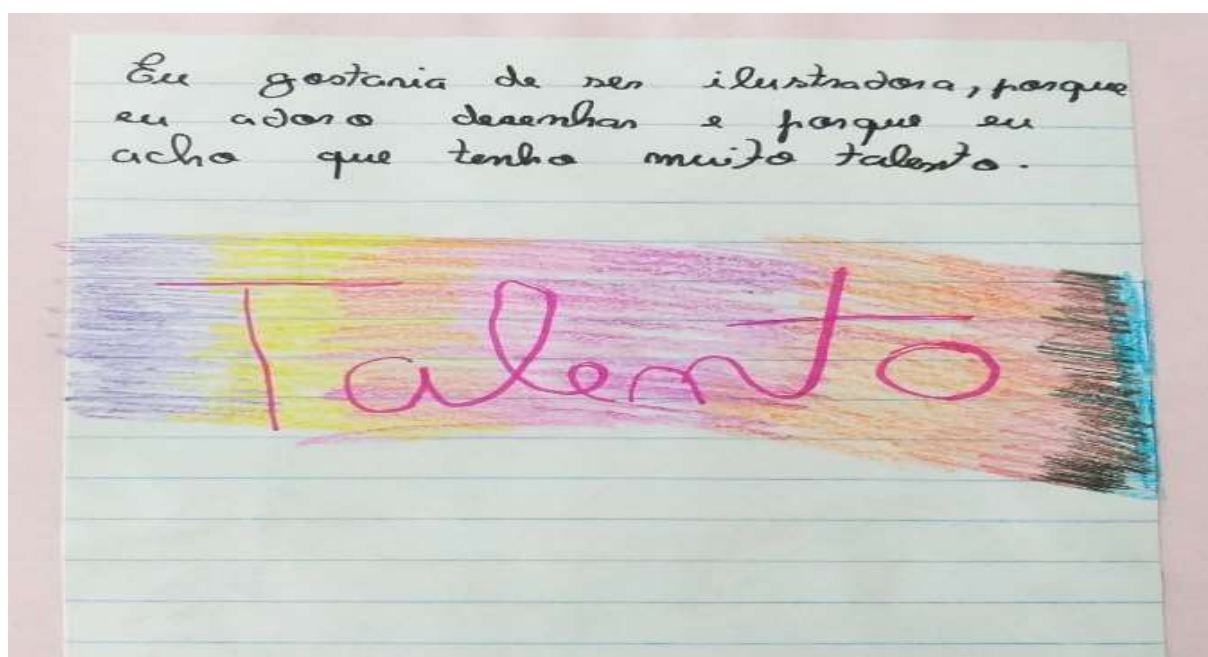 Eu gostaria de ser ilustradora, porque
eu adoro desenhar e porque eu
acho que tenho muito talento.
Talento